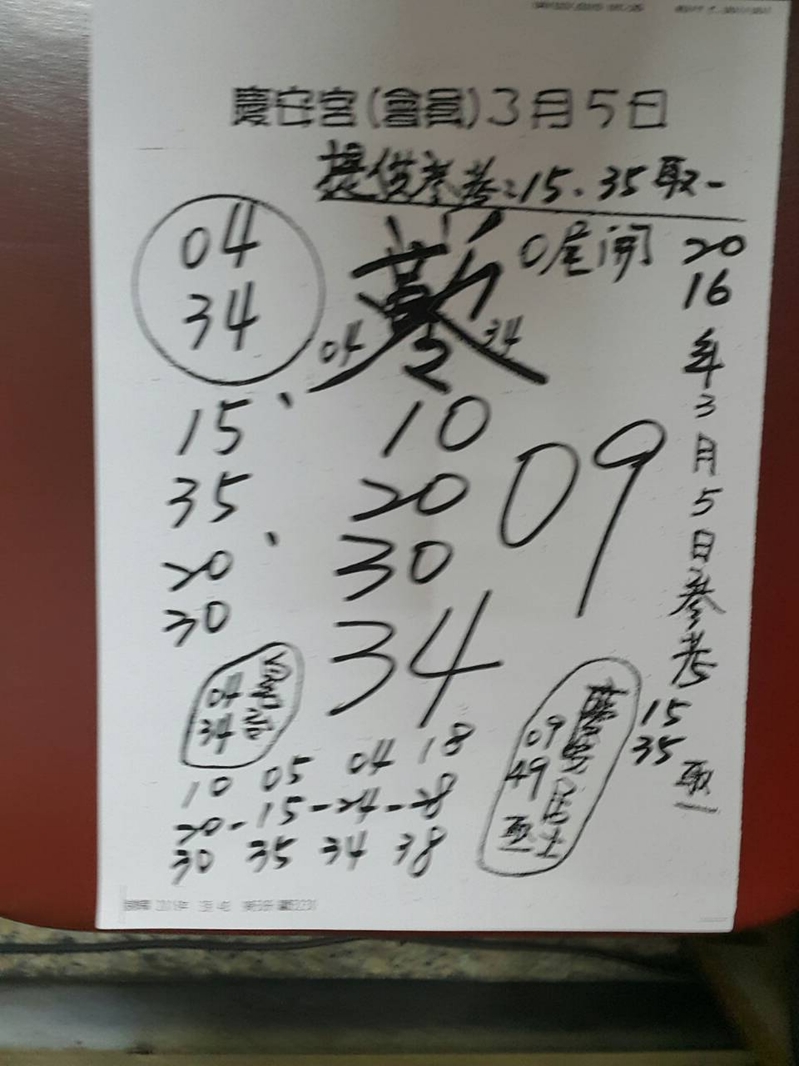 慶安宮(會員)3月5日
提供參考:15、35取一
04
34
0尾開
04
34
15、
35
20、
30
10
20
30
34
09
2016年3月5日參考
15
35
取一
04
34
09
49
取一
10 05 04 18
20-15-24-28
30 35 34 38